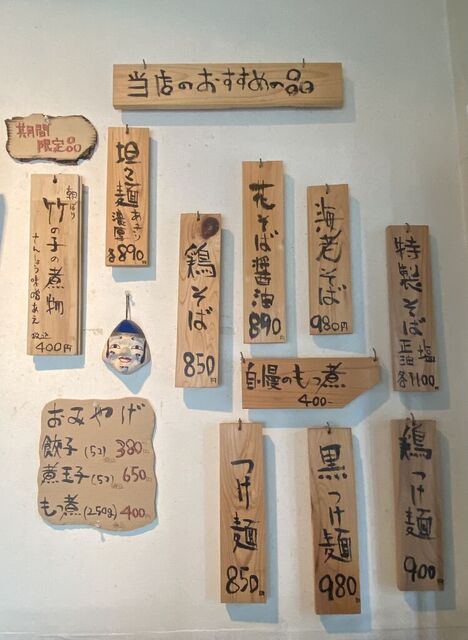 当店のおすすめの品
期間
限定品
朝ほり
竹の子の煮物
さんしょう味噌あえ
税込
400円
坦々麺
あっさり
濃厚
各890円
鶏そば
850円
花そば醤油
890円
海老そば
980円
特製そば
正油
塩
各1100円
自慢のもつ煮
400-
おみやげ
餃子(5コ) 380
煮玉子(5コ) 650
もつ煮(250g) 400
つけ麺
850円
黒つけ麺
980円
鶏つけ麺
900円